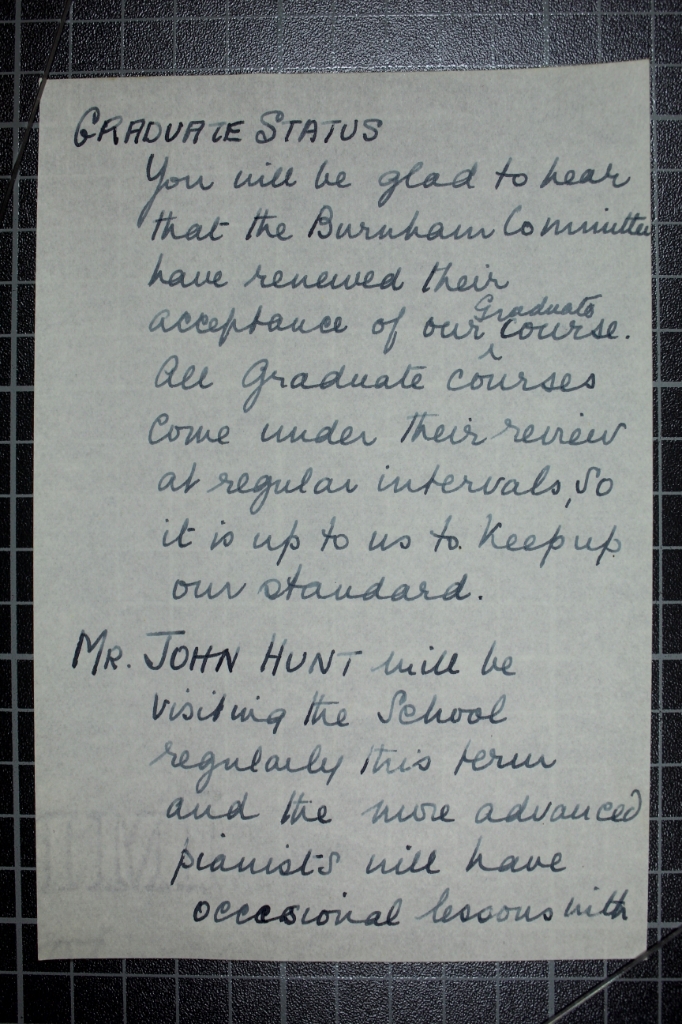 GRADUATE STATUS
You will be glad to hear
that the Burnham Committee
have renewed their
acceptance of our Graduate course.
All Graduate courses
come under their review
at regular intervals, so
it is up to us to keep up
our standard.
MR. JOHN HUNT will be
visiting the School
regularly this term
and the more advanced
pianists will have
occasional lessons with